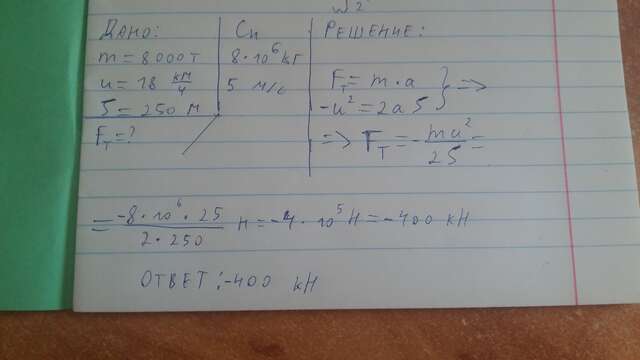 ДАНО:
m = 8000 т
u = 18 км/ч
S = 250 м
Fт = ?
Си
8·10⁶ кг
5 м/с
РЕШЕНИЕ:
Fт = m·a } =>
-u² = 2aS
=> Fт = -mu²/2S =
= -8·10⁶·25/2·250 Н = -4·10⁵ Н = -400 кН
ОТВЕТ: -400 кН